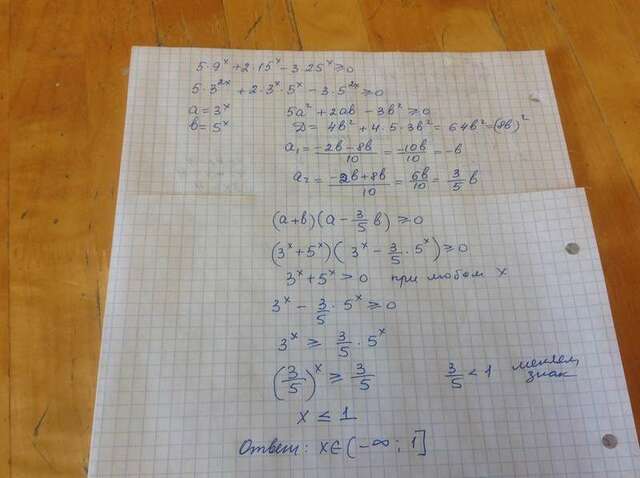 5·9ˣ + 2·15ˣ − 3·25ˣ ≥ 0
5·3²ˣ + 2·3ˣ·5ˣ − 3·5²ˣ ≥ 0
a = 3ˣ 5a² + 2ab − 3b² ≥ 0
b = 5ˣ D = 4b² + 4·5·3b² = 64b² = (8b)²
a₁ = (−2b − 8b)/10 = −10b/10 = −b
a₂ = (−2b + 8b)/10 = 6b/10 = 3/5 b
(a + b)(a − 3/5 b) ≥ 0
(3ˣ + 5ˣ)(3ˣ − 3/5 · 5ˣ) ≥ 0
3ˣ + 5ˣ > 0 при любом x
3ˣ − 3/5 · 5ˣ ≥ 0
3ˣ ≥ 3/5 · 5ˣ
(3/5)ˣ ≥ 3/5 3/5 < 1 меняем знак
x ≤ 1
Ответ: x ∈ (−∞; 1]